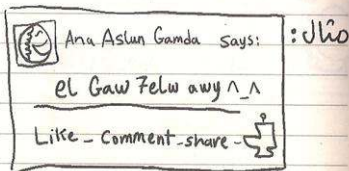 مثال:
Ana Aslun Gamda says:
el Gaw 7elw awy ^_^
Like - Comment - share -